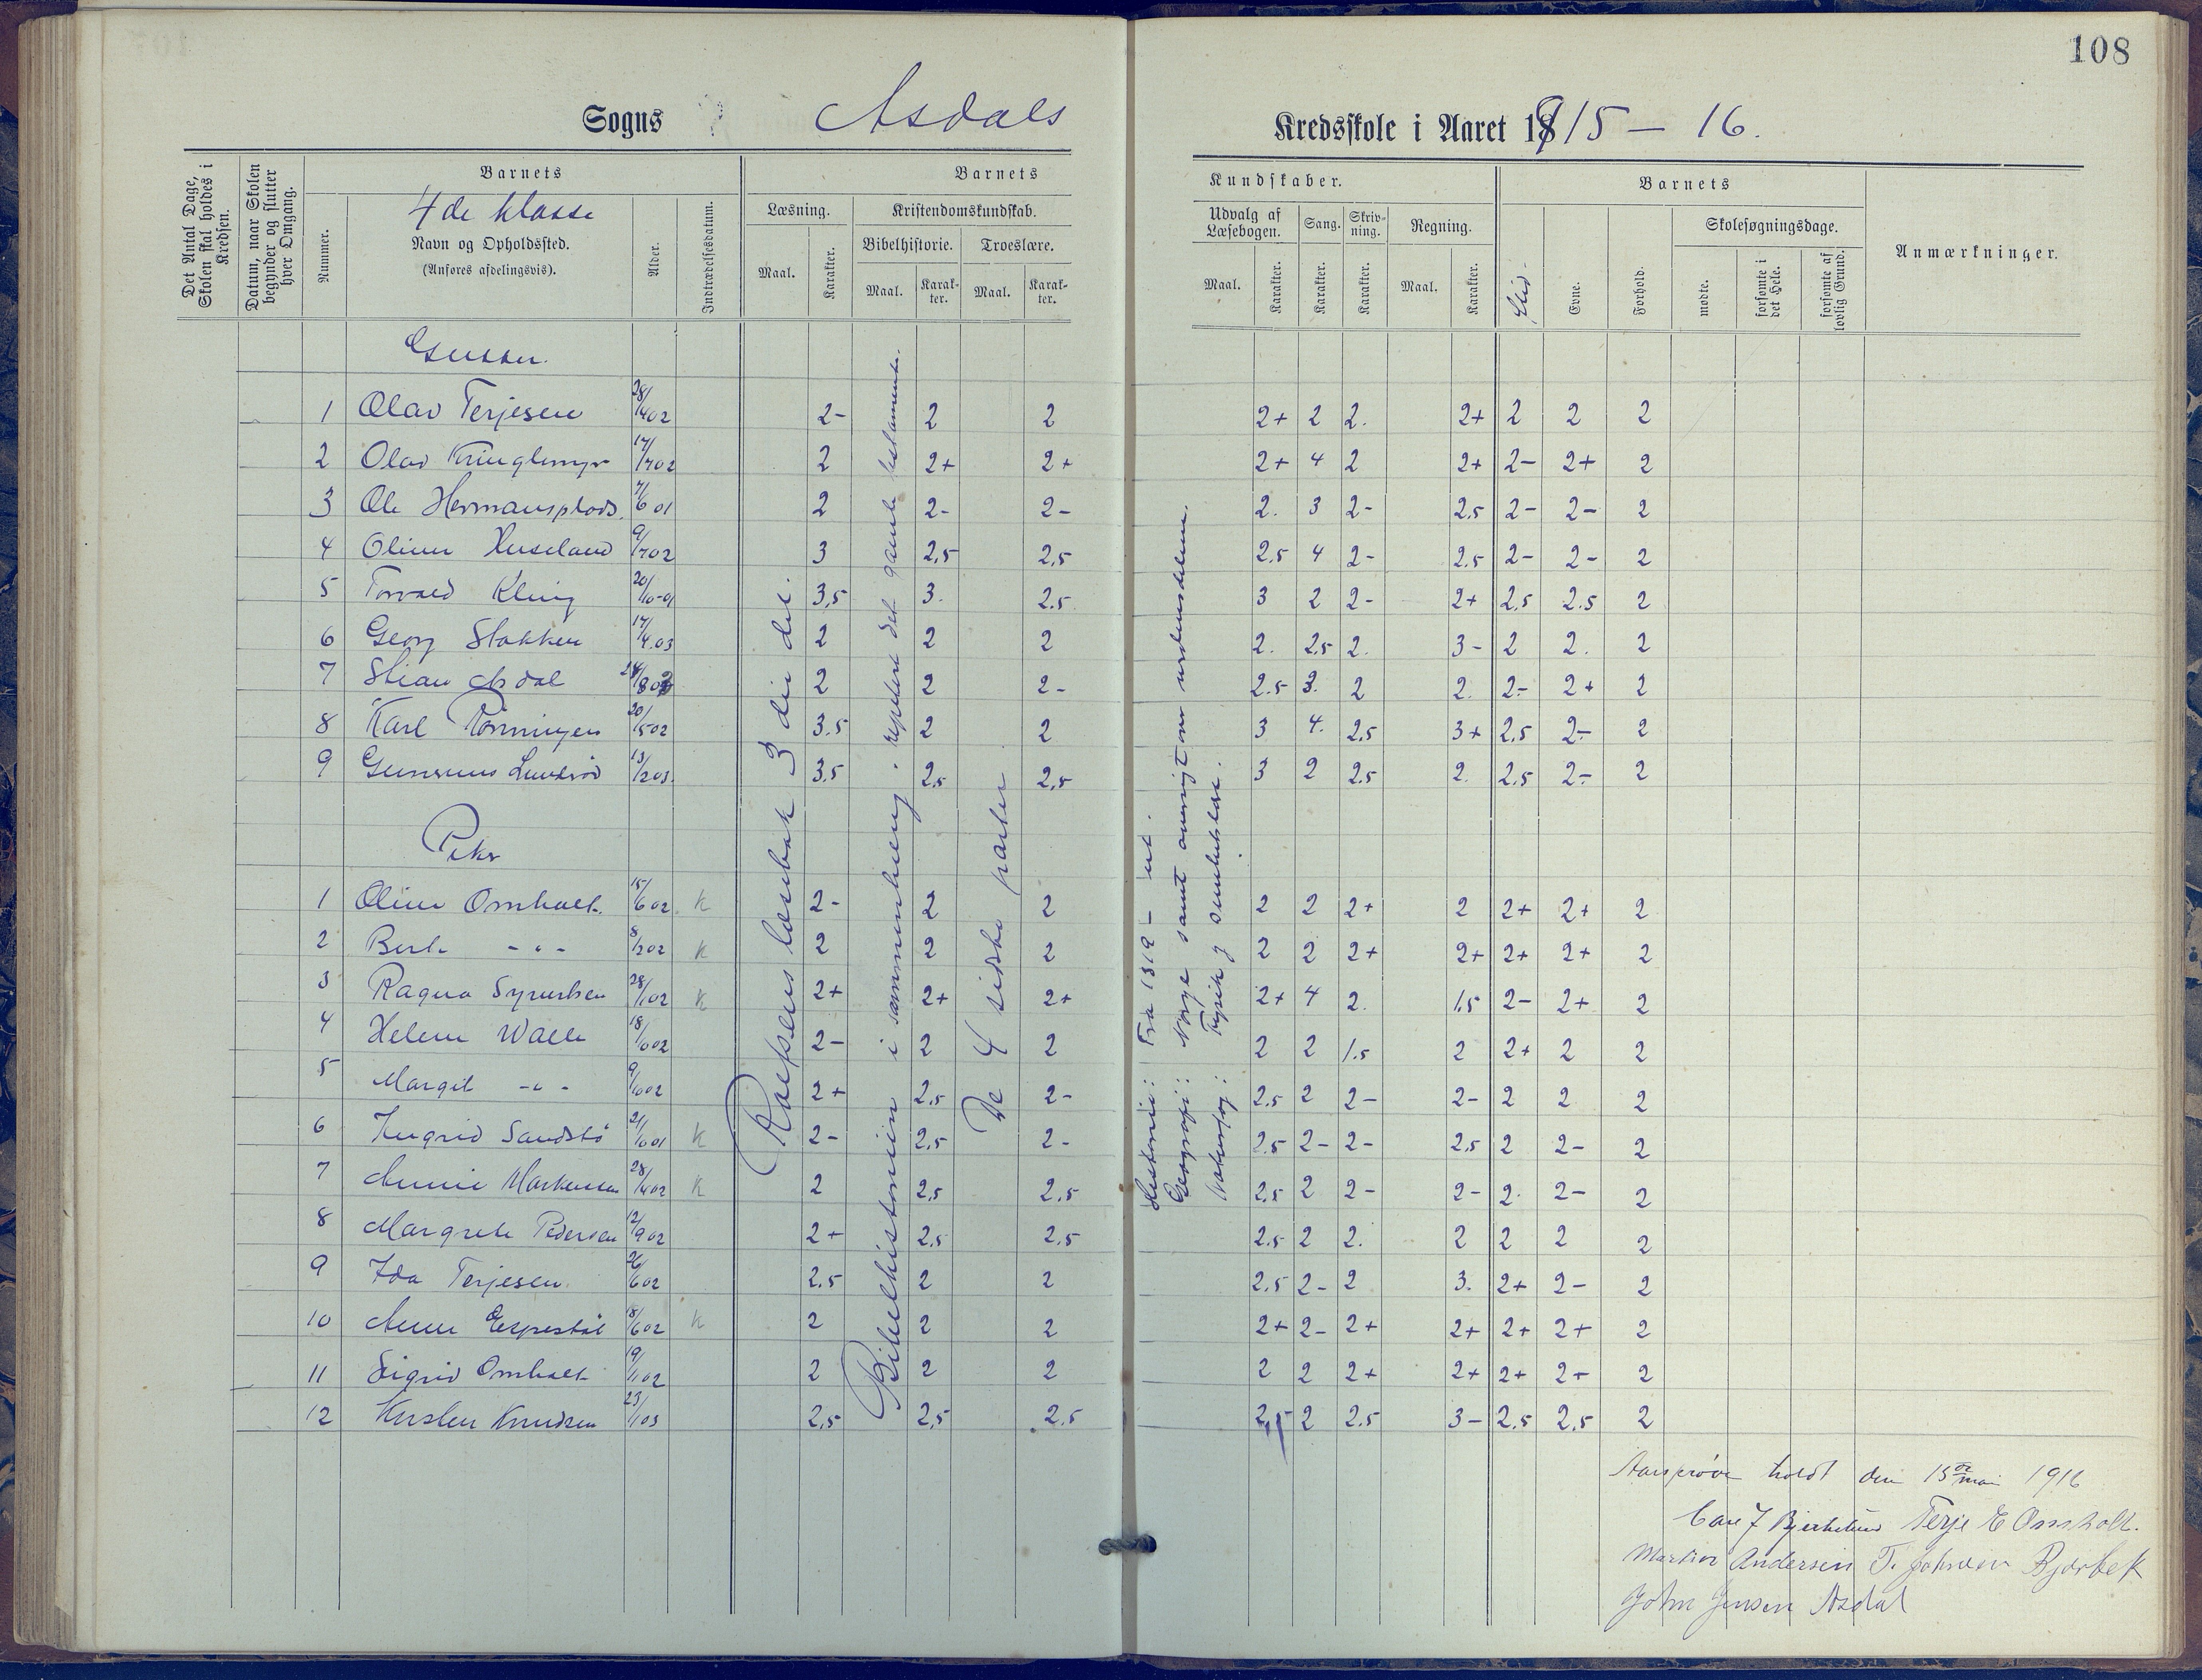 108
Sogns Asdals Kredsskole i Aaret 1915 – 16.
Det Antal Dage, Skolen skal holdes i Kredsen.
Datum, naar Skolen begynder og slutter hver Omgang.
Nummer.
Barnets
4de klasse
Navn og Opholdssted.
(Anføres afdelingsvis).
Alder.
Indtrædelsesdatum.
Barnets Kundskaber.
Læsning.
Maal.
Karakter.
Kristendomskundskab.
Bibelhistorie.
Maal.
Karakter.
Troeslære.
Maal.
Karakter.
Udvalg af Læsebogen.
Maal.
Karakter.
Sang.
Karakter.
Skrivning.
Karakter.
Regning.
Maal.
Karakter.
Barnets
Flid.
Evne.
Forhold.
Skolesøgningsdage.
mødte.
forsømte i det Hele.
forsømte af lovlig Grund.
Anmærkninger.
Gutter.
1 Olav Terjesen 28/4 02 2- 2 2 2+ 2 2. 2+ 2 2 2
2 Olav Kringlemyr 17/7 02 2 2+ 2+ 2+ 4 2 2+ 2- 2+ 2
3 Ole Hermansplads. 7/6 01 2 2- 2- 2. 3 2- 2.5 2- 2- 2
4 Huseland 9/7 02 3 2,5 2,5 2.5 4 2- 2.5 2- 2- 2
5 Torvald Kleiv 20/10-01 3,5 3. 2.5 3 2 2- 2+ 2,5 2.5 2
6 Georg Stokken 17/4.03 2 2 2 2. 2.5 2. 3- 2 2. 2
7 Stian Asdal 24/8 02 2 2 2- 2.5 3. 2 2. 2- 2+ 2
8 Karl Rønningen 20/5 02 3.5 2 2 3 4. 2,5 3+ 2,5 2- 2
9 Gunvius Lundrød 13/2 03. 3,5 2,5 2,5 3 2 2.5 2. 2.5 2- 2
Piker
1 Omholt. 15/6 02. K 2- 2 2 2 2 2+ 2 2+ 2+ 2
2 Berte - " - 8/2 02 K 2 2 2 2 2 2+ 2+ 2+ 2+ 2
3 Ragna Syvertsen 28/1 02 K 2+ 2+ 2+ 2+ 4 2. 1.5 2- 2+ 2
4 Helene Walle 2- 2 2 2 2 1.5 2 2+ 2 2
5 Margit - " - 2+ 2,5 2- 2.5 2 2- 2- 2 2 2
6 Ingrid Sandstø K 2- 2,5 2- 2.5 2- 2- 2,5 2 2- 2
7 Annie Markussen 28/4 02 K 2 2,5 2,5 2,5 2 2- 2- 2. 2- 2
8 Margrete Pedersen 12/9 02 2+ 2,5 2,5 2.5 2 2. 2 2 2 2
9 Ida Terjesen. 26/6 02 2.5 2 2 2.5 2- 2 3. 2+ 2- 2
10 Anne Espestøl 18/6 02 K 2 2 2 2+ 2- 2+ 2+ 2+ 2+ 2
11 Sigrid Omholt 19/1 02 2 2 2 2 2 2+ 2+ 2+ 2+ 2
12 Kirsten Knudsen 23/1 03 2,5 2,5 2.5 2,5 2 2.5 3- 2.5 2,5 2
Rolfsens læsebok 3die del.
Bibelhistorien i sammenheng. repetert det gamle testamente.
De 4 sidste parter
Historie: Fra 1319 – ut.
Geografi: Norge samt oversigt over verdensdelene.
Naturfag: Fysik og sundhetslære.
Aarsprøve holdt den 15de mai 1916
Carl J Bjerkelund Terje E Omholt.
Martin Andersen T. Johnsen Bjorbek
John Jensen Asdal